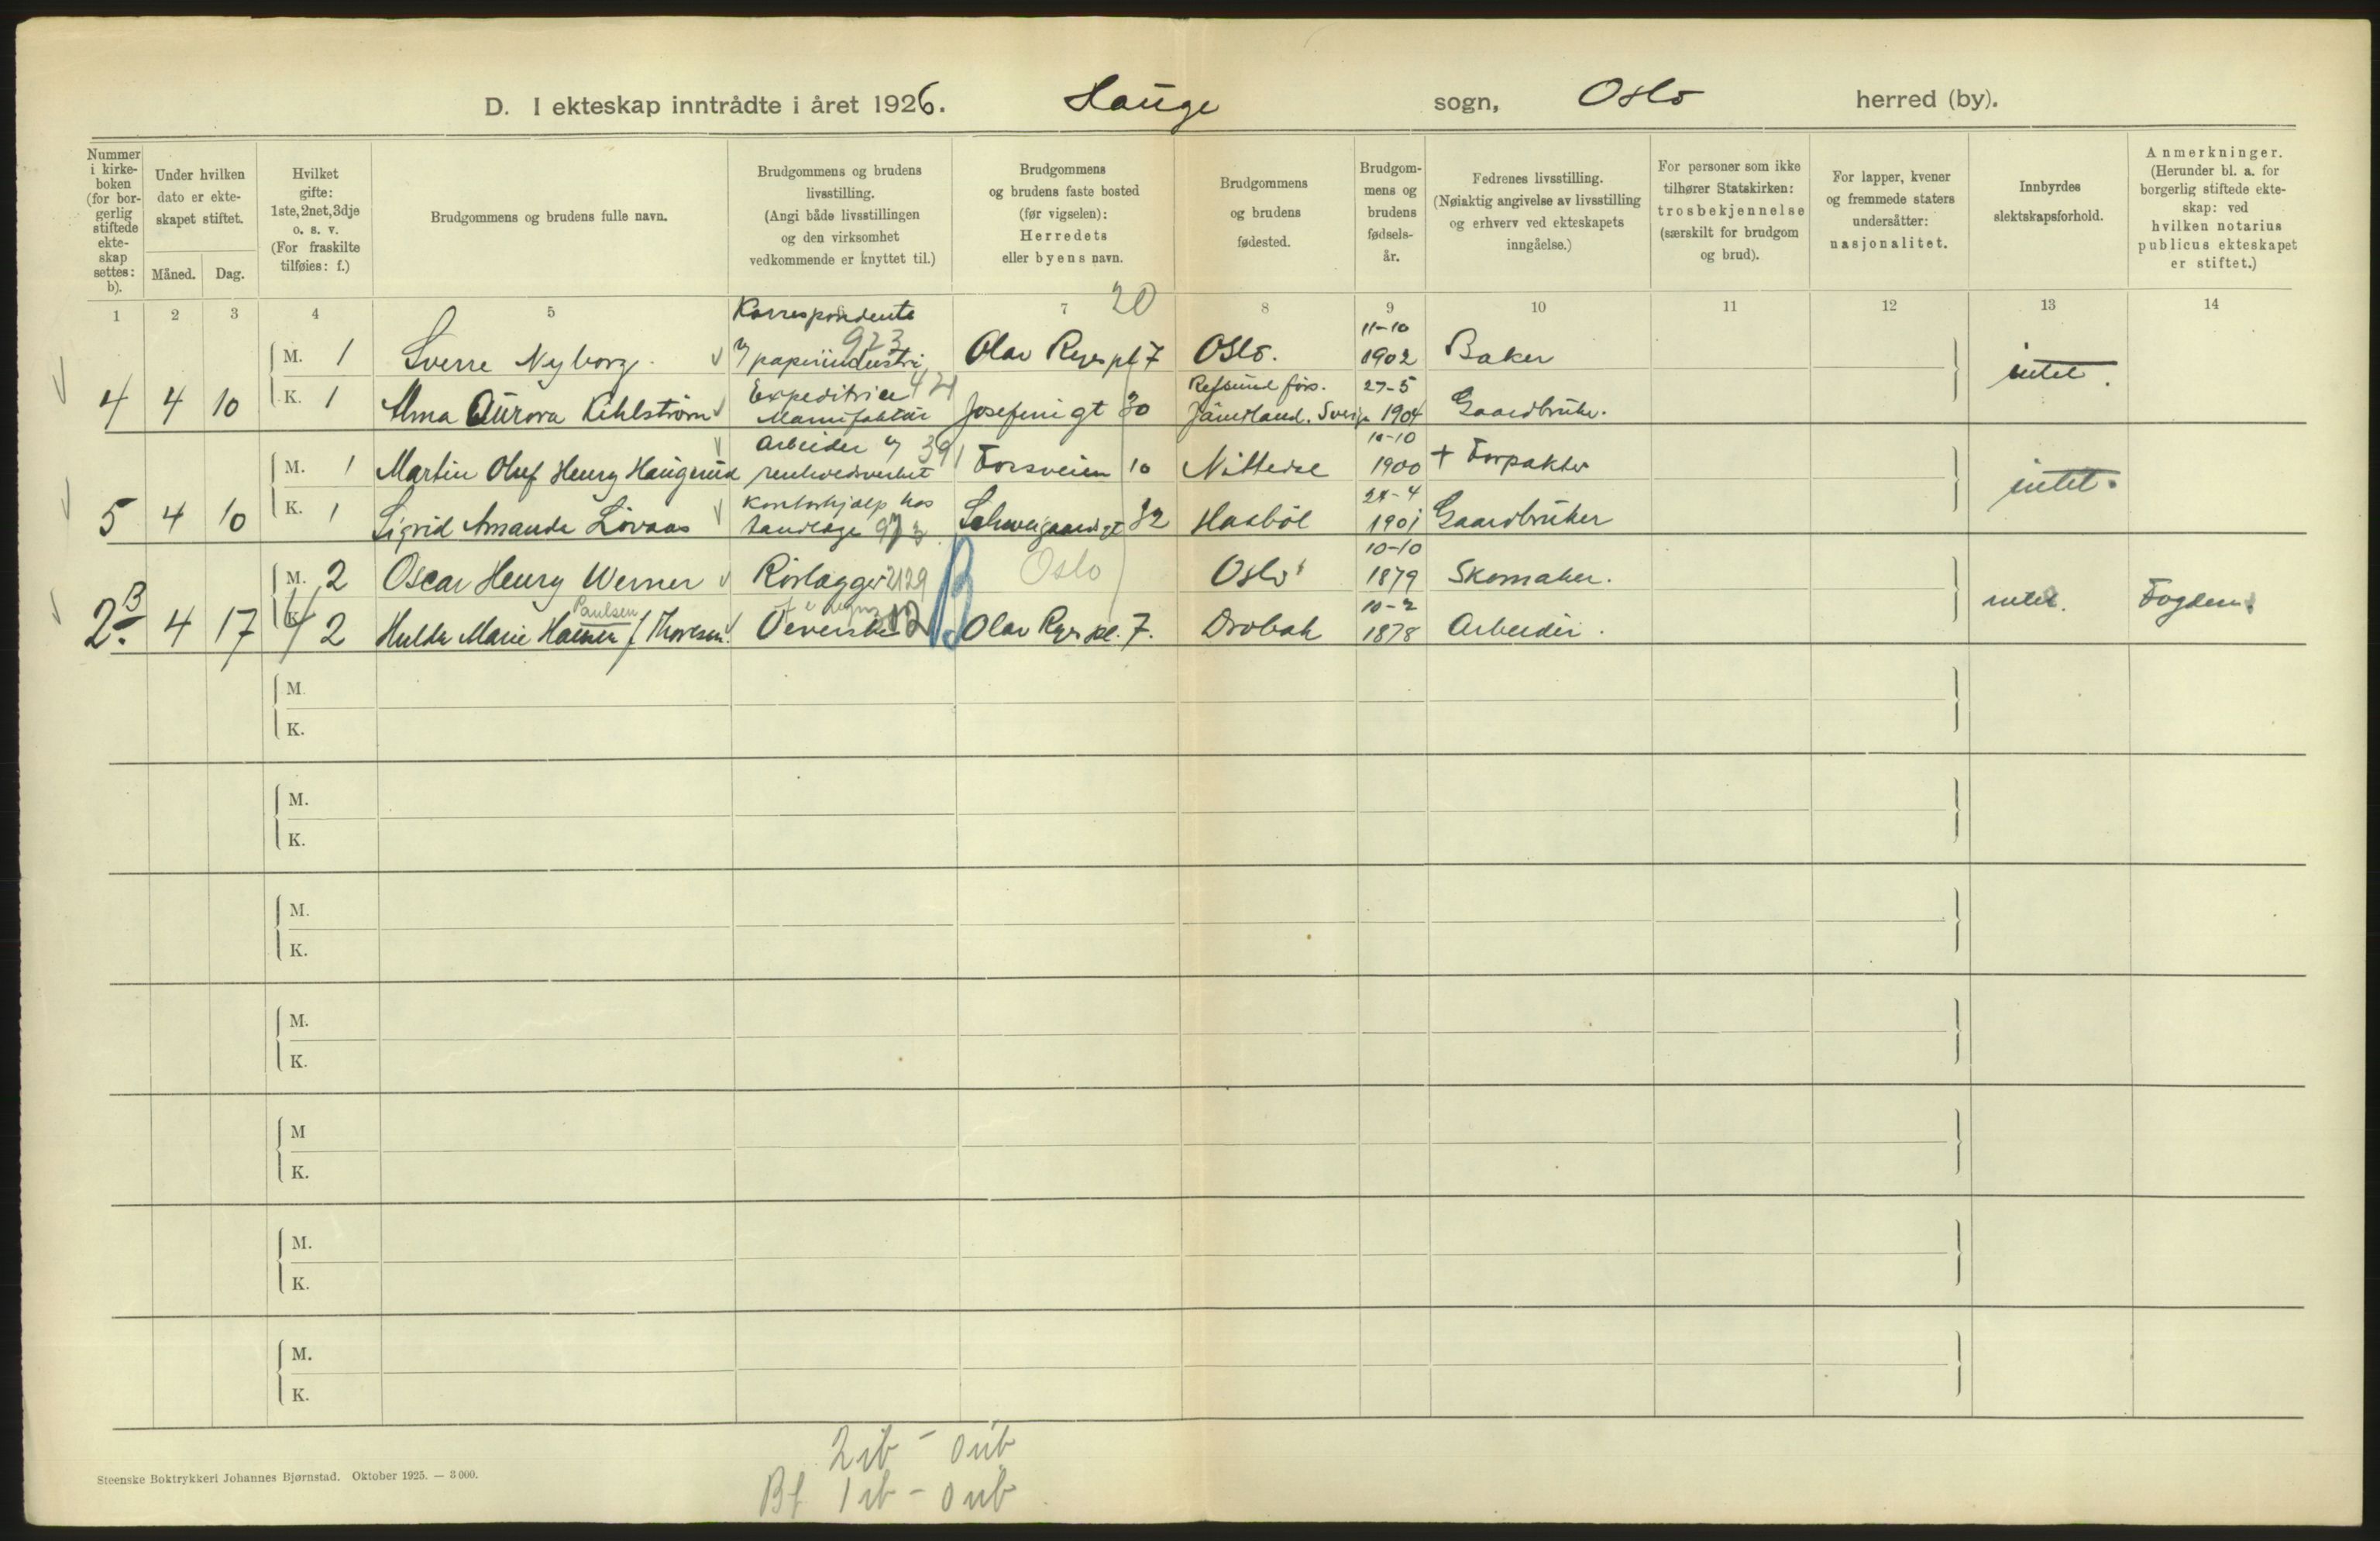 D. I ekteskap inntrådte i året 1926. Hauge sogn, Oslo herred (by).
Nummer i kirke-boken (for bor-gerlig stiftede ekte-skap settes: b).
Under hvilken dato er ekte-skapet stiftet.
Måned. Dag.
Hvilket gifte: 1ste, 2net, 3dje o. s. v. (For fraskilte tilføies: f.)
Brudgommens og brudens fulle navn.
Brudgommens og brudens livsstilling. (Angi både livsstillingen og den virksomhet vedkommende er knyttet til.)
Brudgommens og brudens faste bosted (før vigselen): Herredets eller byens navn.
Brudgommens og brudens fødested.
Brudgom-mens og brudens fødsels-år.
Fedrenes livsstilling. (Nøiaktig angivelse av livsstilling og erhverv ved ekteskapets inngåelse.)
For personer som ikke tilhører Statskirken: trosbekjennelse (særskilt for brudgom og brud).
For lapper, kvener og fremmede staters undersåtter: nasjonalitet.
Innbyrdes slektskapsforhold.
Anmerkninger. (Herunder bl. a. for borgerlig stiftede ekte-skap: ved hvilken notarius publicus ekteskapet er stiftet.)
1 2 3 4 5 7 20 8 9 10 11 12 13 14
Korrespondent
923 11-10
M. 1 Sverre Nyborg. papirindustri Olav Ryes pl 7 Oslo. 1902 Baker intet.
Expeditrice Refsund förs. 27-5
4 4 10 K. 1 Alma Aurora Kihlström Manufaktur Josefinigt 30 Jämtland. Sverige 1904 Gaardbruker.
Arbeider 391 10-10
M. 1 Martin Oluf Henry Haugerud renholdsverket Forsveien 10 Nittedal 1900 + Forpakter intet.
Kontorhjælp hos 24-4
5 4 10 K. 1 Sigrid Amanda Løvaas tandlæge 973 Schweigaardsgt 32 Hasböl 1901 Gaardbruker
10-10
M. 2 Oscar Henry Werner Rørlægger 2129 Oslo Oslo 1879 Skomaker.
Paulsen 10-2
2 B 4 17 K. 2 Hulda Marie Hansen f. Thoresen. Væverske 12 B Olav Ryes pl. 7. Drøbak 1878 Arbeider. intet. Fogden.
M.
K.
M.
K.
M.
K.
M.
K.
M
K.
M.
K.
M.
K.
2 ib - 0 uib
Bf. 1 ib - 0 uib
Steenske Boktrykkeri Johannes Bjørnstad. Oktober 1925. — 3 000.